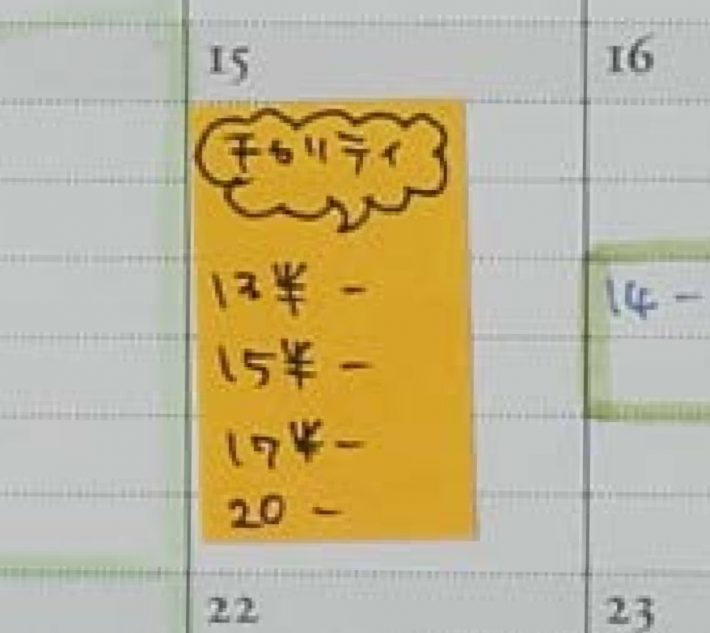 15
16
チャリティ
13半 -
15半 -
17半 -
20 -
14 -
22
23